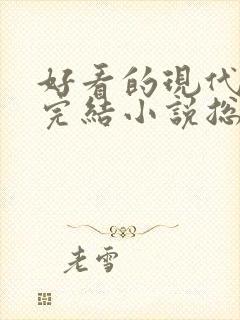 好看的現代
完結小說総
老雪